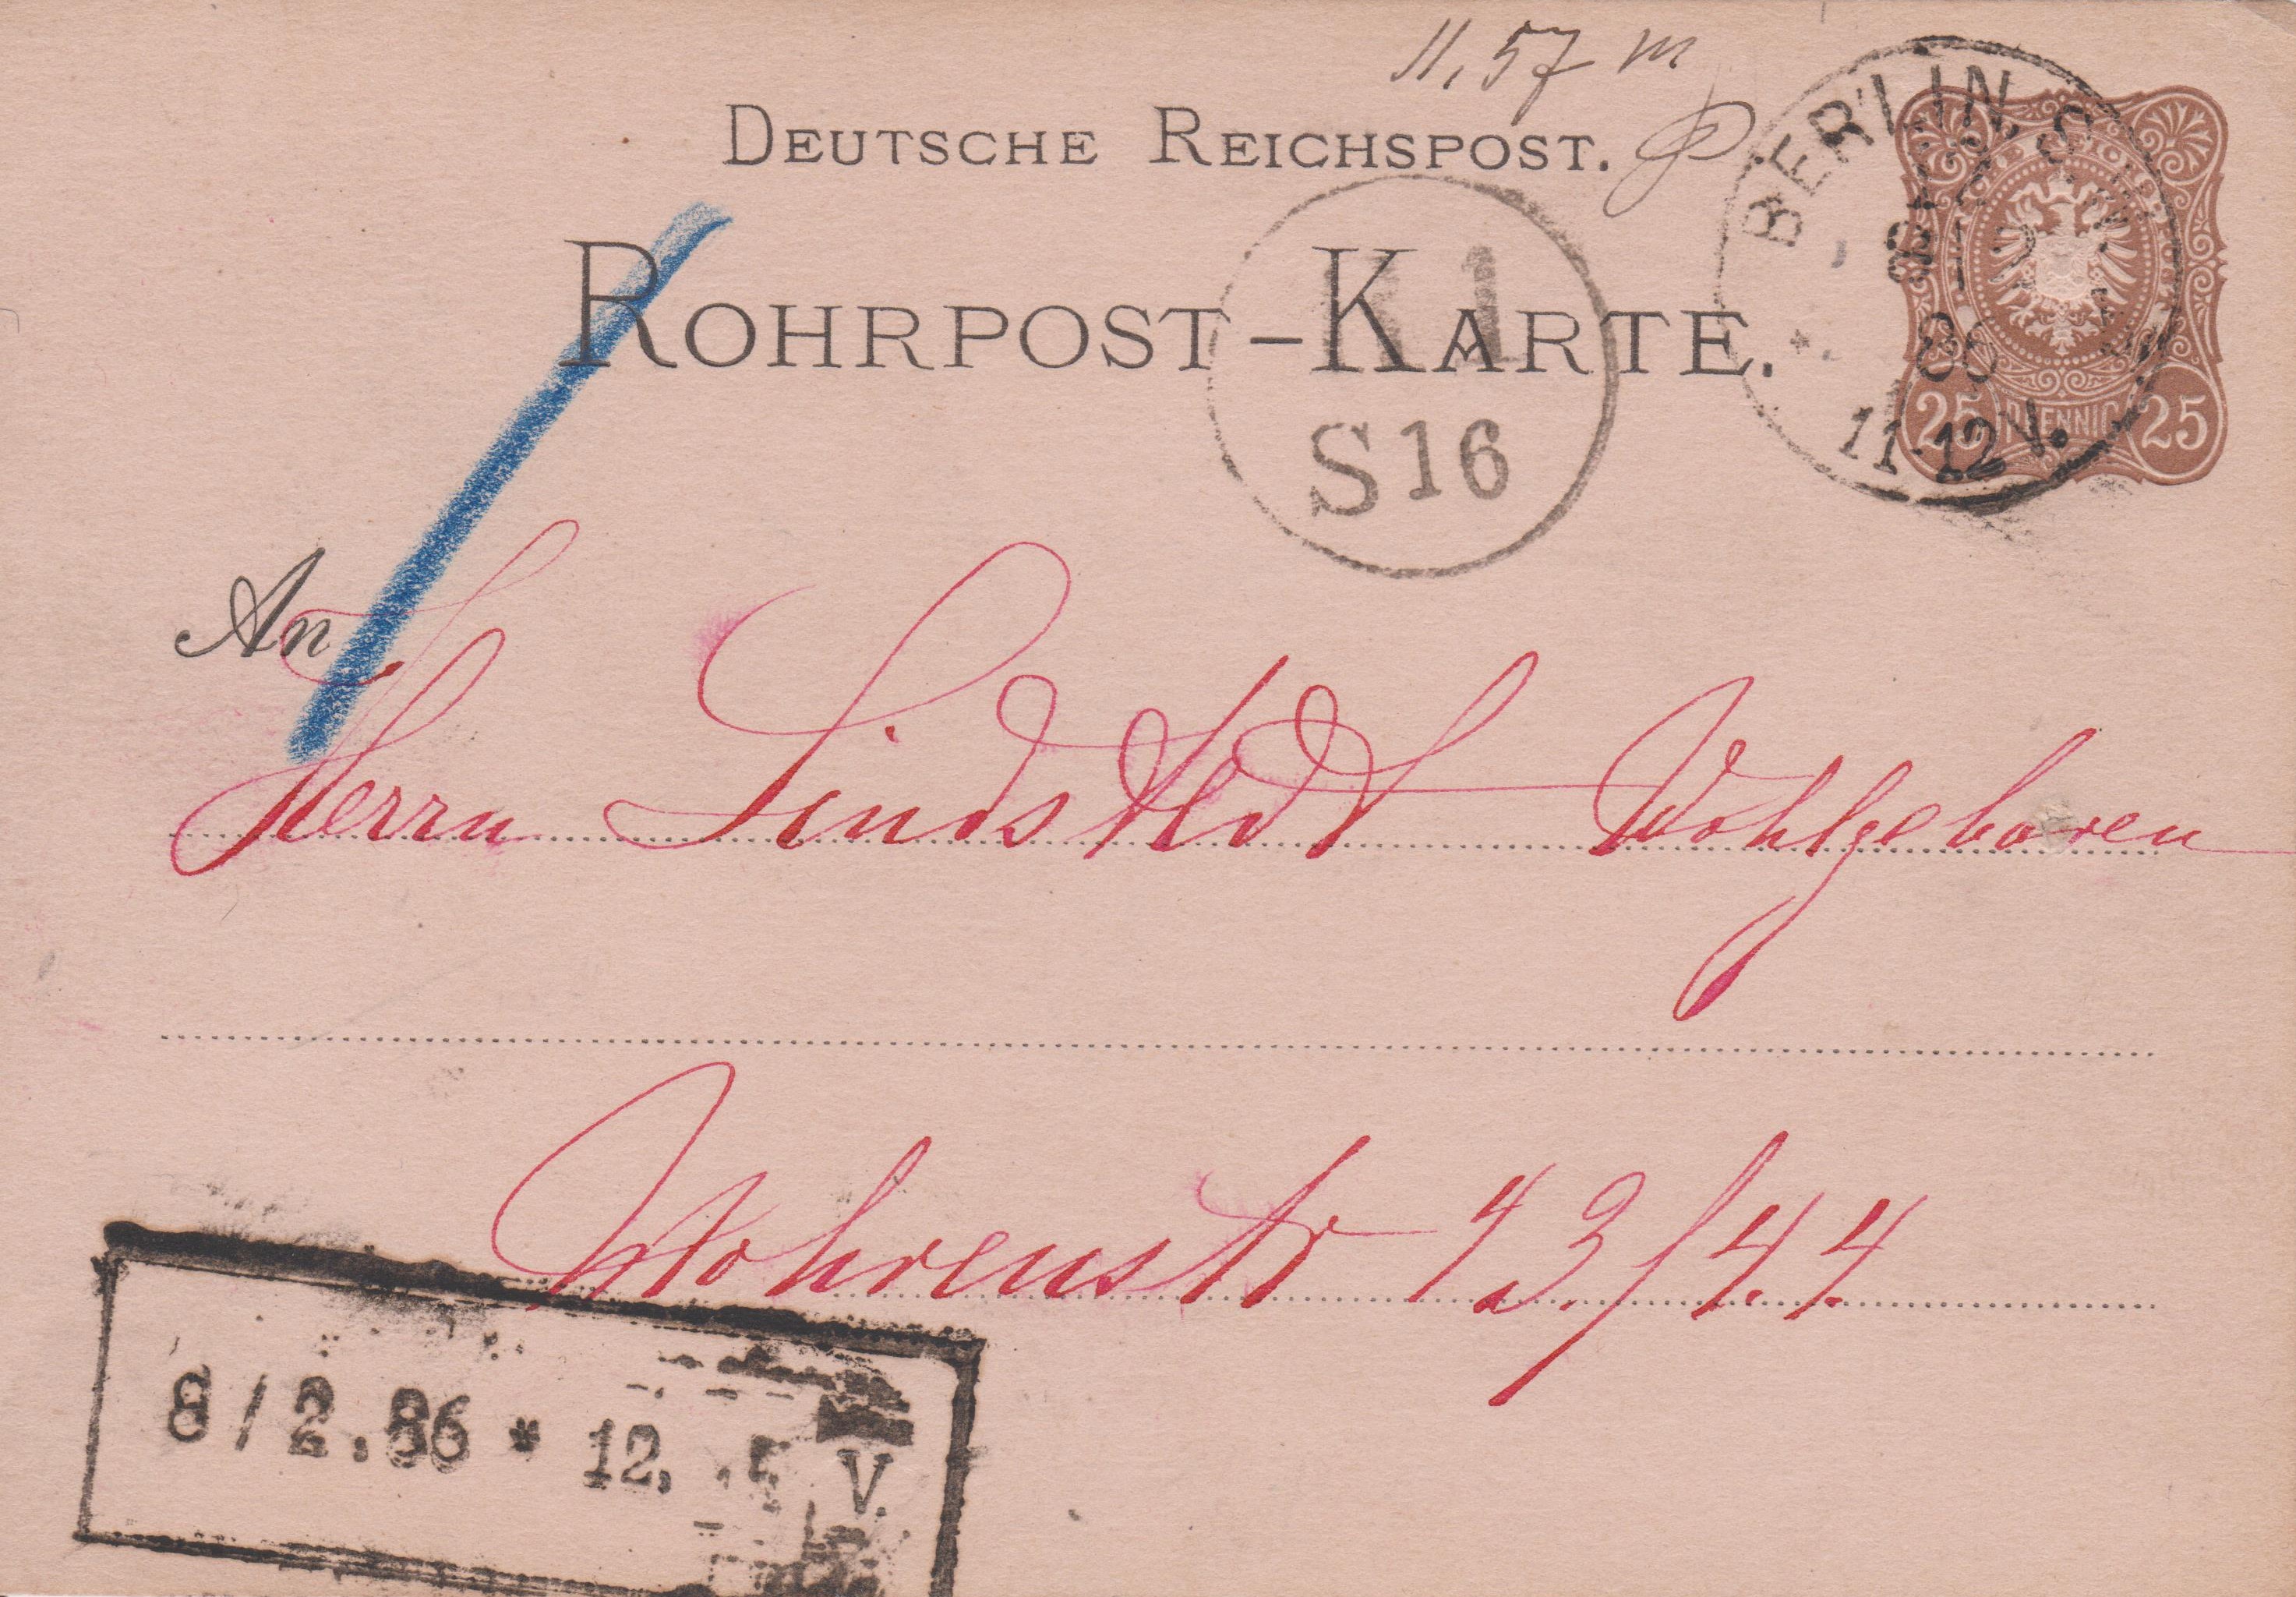 11,57 m
DEUTSCHE REICHSPOST.
ROHRPOST-KARTE.
BERLIN, S.W.
8/2
86
11-12V.
25 PFENNIG 25
K 1
S 16
An
Herrn Lindstedt Wohlgeboren
Mohrenstr 43/44
8/2.86 * 12, V.